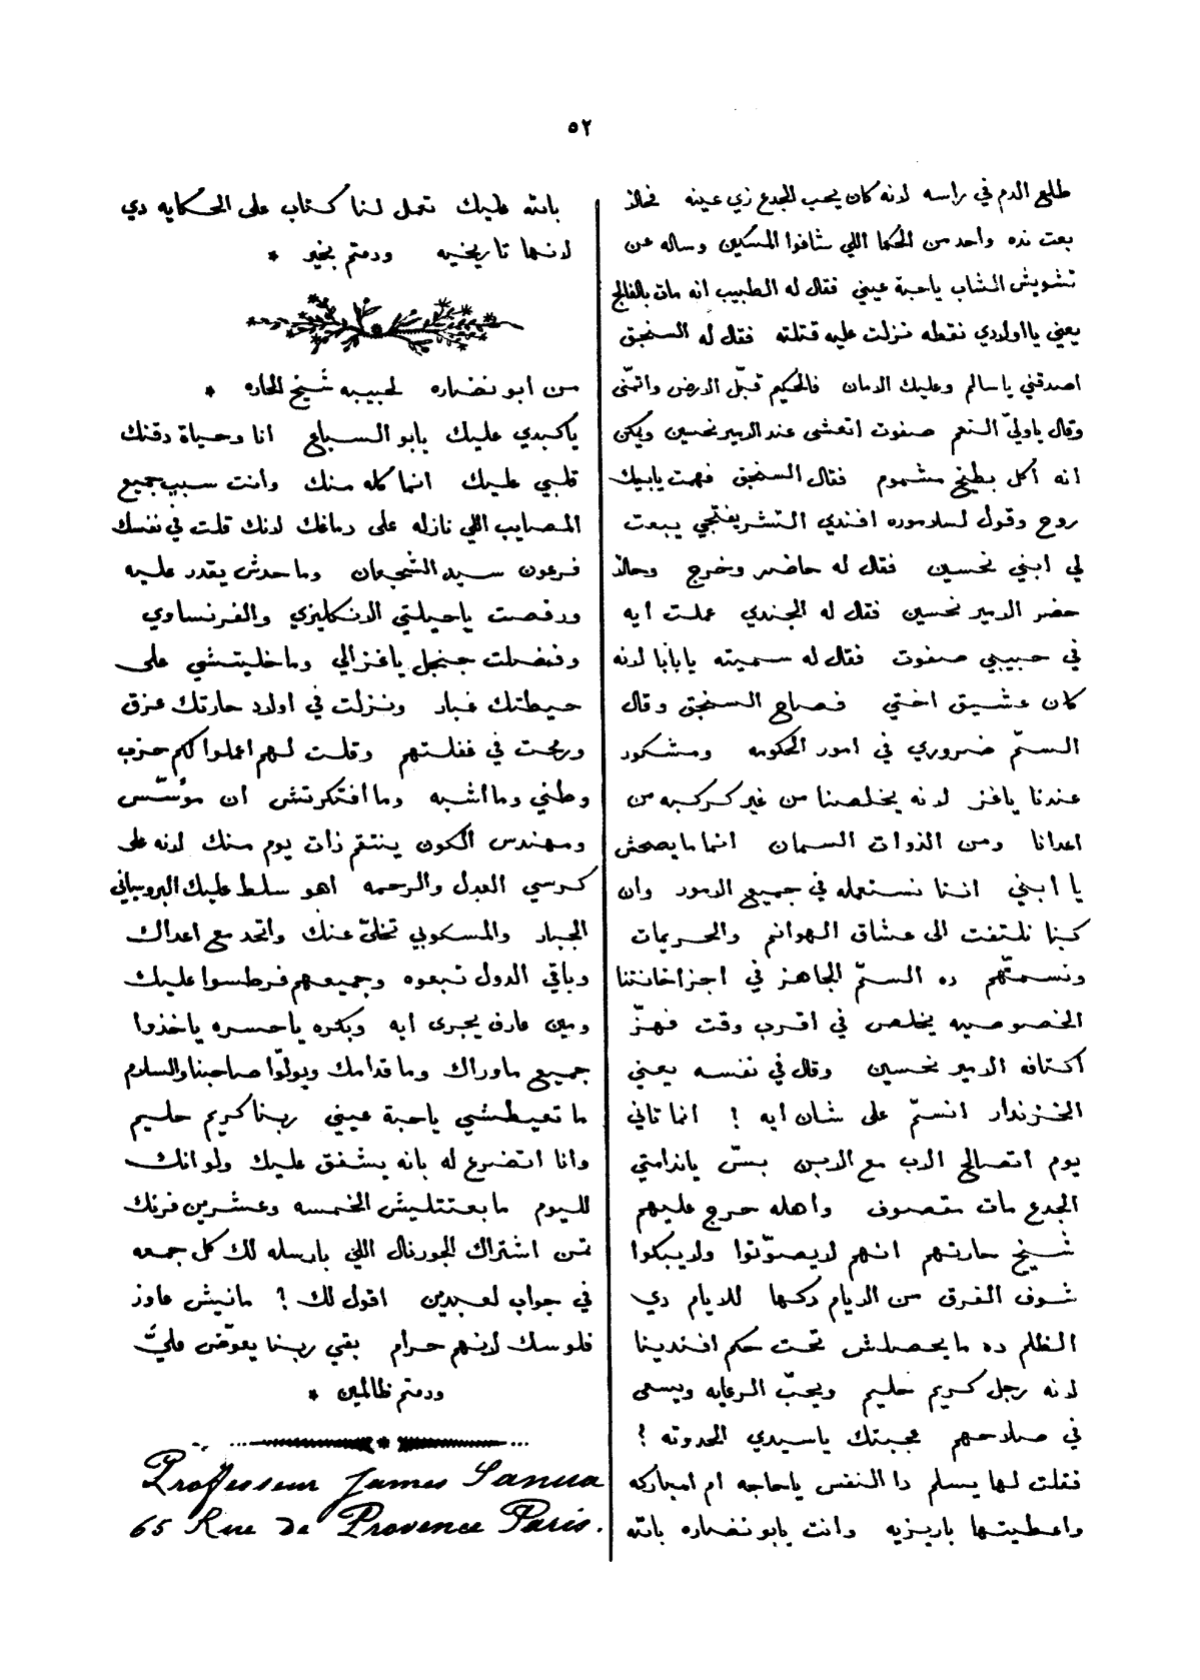 ٥٢
طلع الدم في راسه لانه كان يحب الجدع زي عينه فحالا
بعت نده واحد من الحكما اللي شافوا المسكين وساله عن
تشويش الشاب ياحبة عيني فقال له الطبيب انه مات بالفالج
يعني يا اولادي نقطه نزلت عليه قتلته فقال له السنجق
اصدقني ياسالم وعليك الامان فالحكيم قبّل الارض واتمنّى
وقال ياوليّ النعم صفوت اتعشى عند الامير نحسين ويمكن
انه اكل بطيخ مشموم فقال السنجق فهمت يابيك
روح وقول لسلاموره افندي التشريفتجي يبعت
لي ابني نحسين فقال له حاضر وخرج وحالا
حضر الامير نحسين فقال له الجندي عملت ايه
في حبيبي صفوت فقال له سميته يابابا لانه
كان عشيق اختي فصاح السنجق وقال
السمّ ضروري في امور الحكومه ومشكور
عندنا يافز لانه يخلصنا من غير كركبه من
اعدانا ومن الذوات السمان انما مايصحش
يا ابني اننا نستعمله في جميع الامور وان
كنا نلتفت الى عشاق الهوانم والحريمات
ونسمّهم ده السمّ الجاهز في اجزاخانتنا
الخصوصيه يخلص في اقرب وقت فهزّ
اكتافه الامير نحسين وقال في نفسه يعني
الخزندار انسمّ على شان ايه ! انما تاني
يوم اتصالح الاب مع الابن بسّ ياندامتي
الجدع مات مقصوف واهله حرج عليهم
شيخ حارتهم انهم لايصوّتوا ولايبكوا
شوف الفرق من الايام دكها للايام دي
الظلم ده مايحصلش تحت حكم افندينا
لانه رجل كريم حليم ويحبّ الرعايه ويسعى
في صلاحهم عجبتك ياسيدي الحدوته ؟
فقلت لها يسلم دا النفس ياحاجه ام امباركه
واعطيتها باريزيه وانت يابو نضاره بالله
بالله عليك تعمل لنا كتاب على الحكايه دي
لانها تاريخيه ودمتم بخير *
من ابو نضاره لحبيبه شيخ الحاره *
ياكبدي عليك يابو السباع انا وحياة دقنك
قلبي عليك انما كله منك وانت سبب جميع
المصايب اللي نازله على دماغك لانك قلت في نفسك
فرعون سيد الشجعان وماحدش يقدر عليه
ورفصت ياحيلتي الانكليزي والفرنساوي
وفضلت جنجل ياغزالي وماخليتشي على
حيطتك غبار ونزلت في اولاد حارتك عزق
ورمحت في غفلتهم وقلت لهم اعملوا لكم حزب
وطني وما اشبه وما افتكرتش ان مؤسّس
ومهندس الكون ينتقم ذات يوم منك لانه على
كرسي العدل والرحمه اهو سلط عليك البروسياني
الجبار والمسكوبي تخلىّ عنك واتحد مع اعداك
وباقي الدول تبعوه وجميعهم فرطسوا عليك
ومين عارف يجرى ايه وبكره ياحسره ياخذوا
جميع ماوراك وما قدامك ويولّوا صاحبنا والسلام
ما تعيطشي ياحبة عيني ربنا كريم حليم
وانا اتضرع له بانه يشفق عليك ولو انك
لليوم مابعتتليش الخمسه وعشرين فرنك
تمن اشتراك الجورنال اللي بارسله لك كل جمعه
في جواب لعبدين اقول لك ؟ مانيش عاوز
فلوسك لانهم حرام بقي ربنا يعوّض عليّ
ودمتم ظالمين *
Professeur James Sanua
65 Rue de Provence Paris.